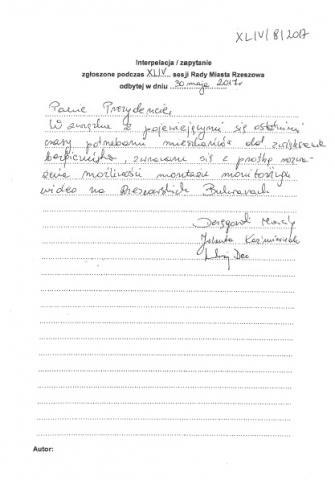 XLIV/8/2017
Interpelacja / zapytanie
zgłoszone podczas XLIV sesji Rady Miasta Rzeszowa
odbytej w dniu 30 maja 2017r
Panie Prezydencie,
W związku z pojawiającymi się ostatnimi
czasy potrzebami mieszkańców dot. zwiększenia
bezpieczeństwa, zwracam się z prośbą rozwa-
żenia możliwości montażu monitoringu
wideo na Rzeszowskich Bulwarach
Jolanta Kaźmierczak
Autor: